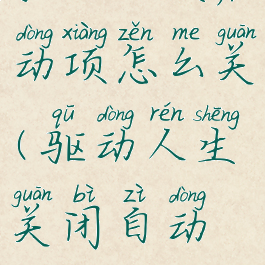 dòng xiàng zěn me guān
动项怎么关
qū dòng rén shēng
(驱动人生
guān bì zì dòng
关闭自动